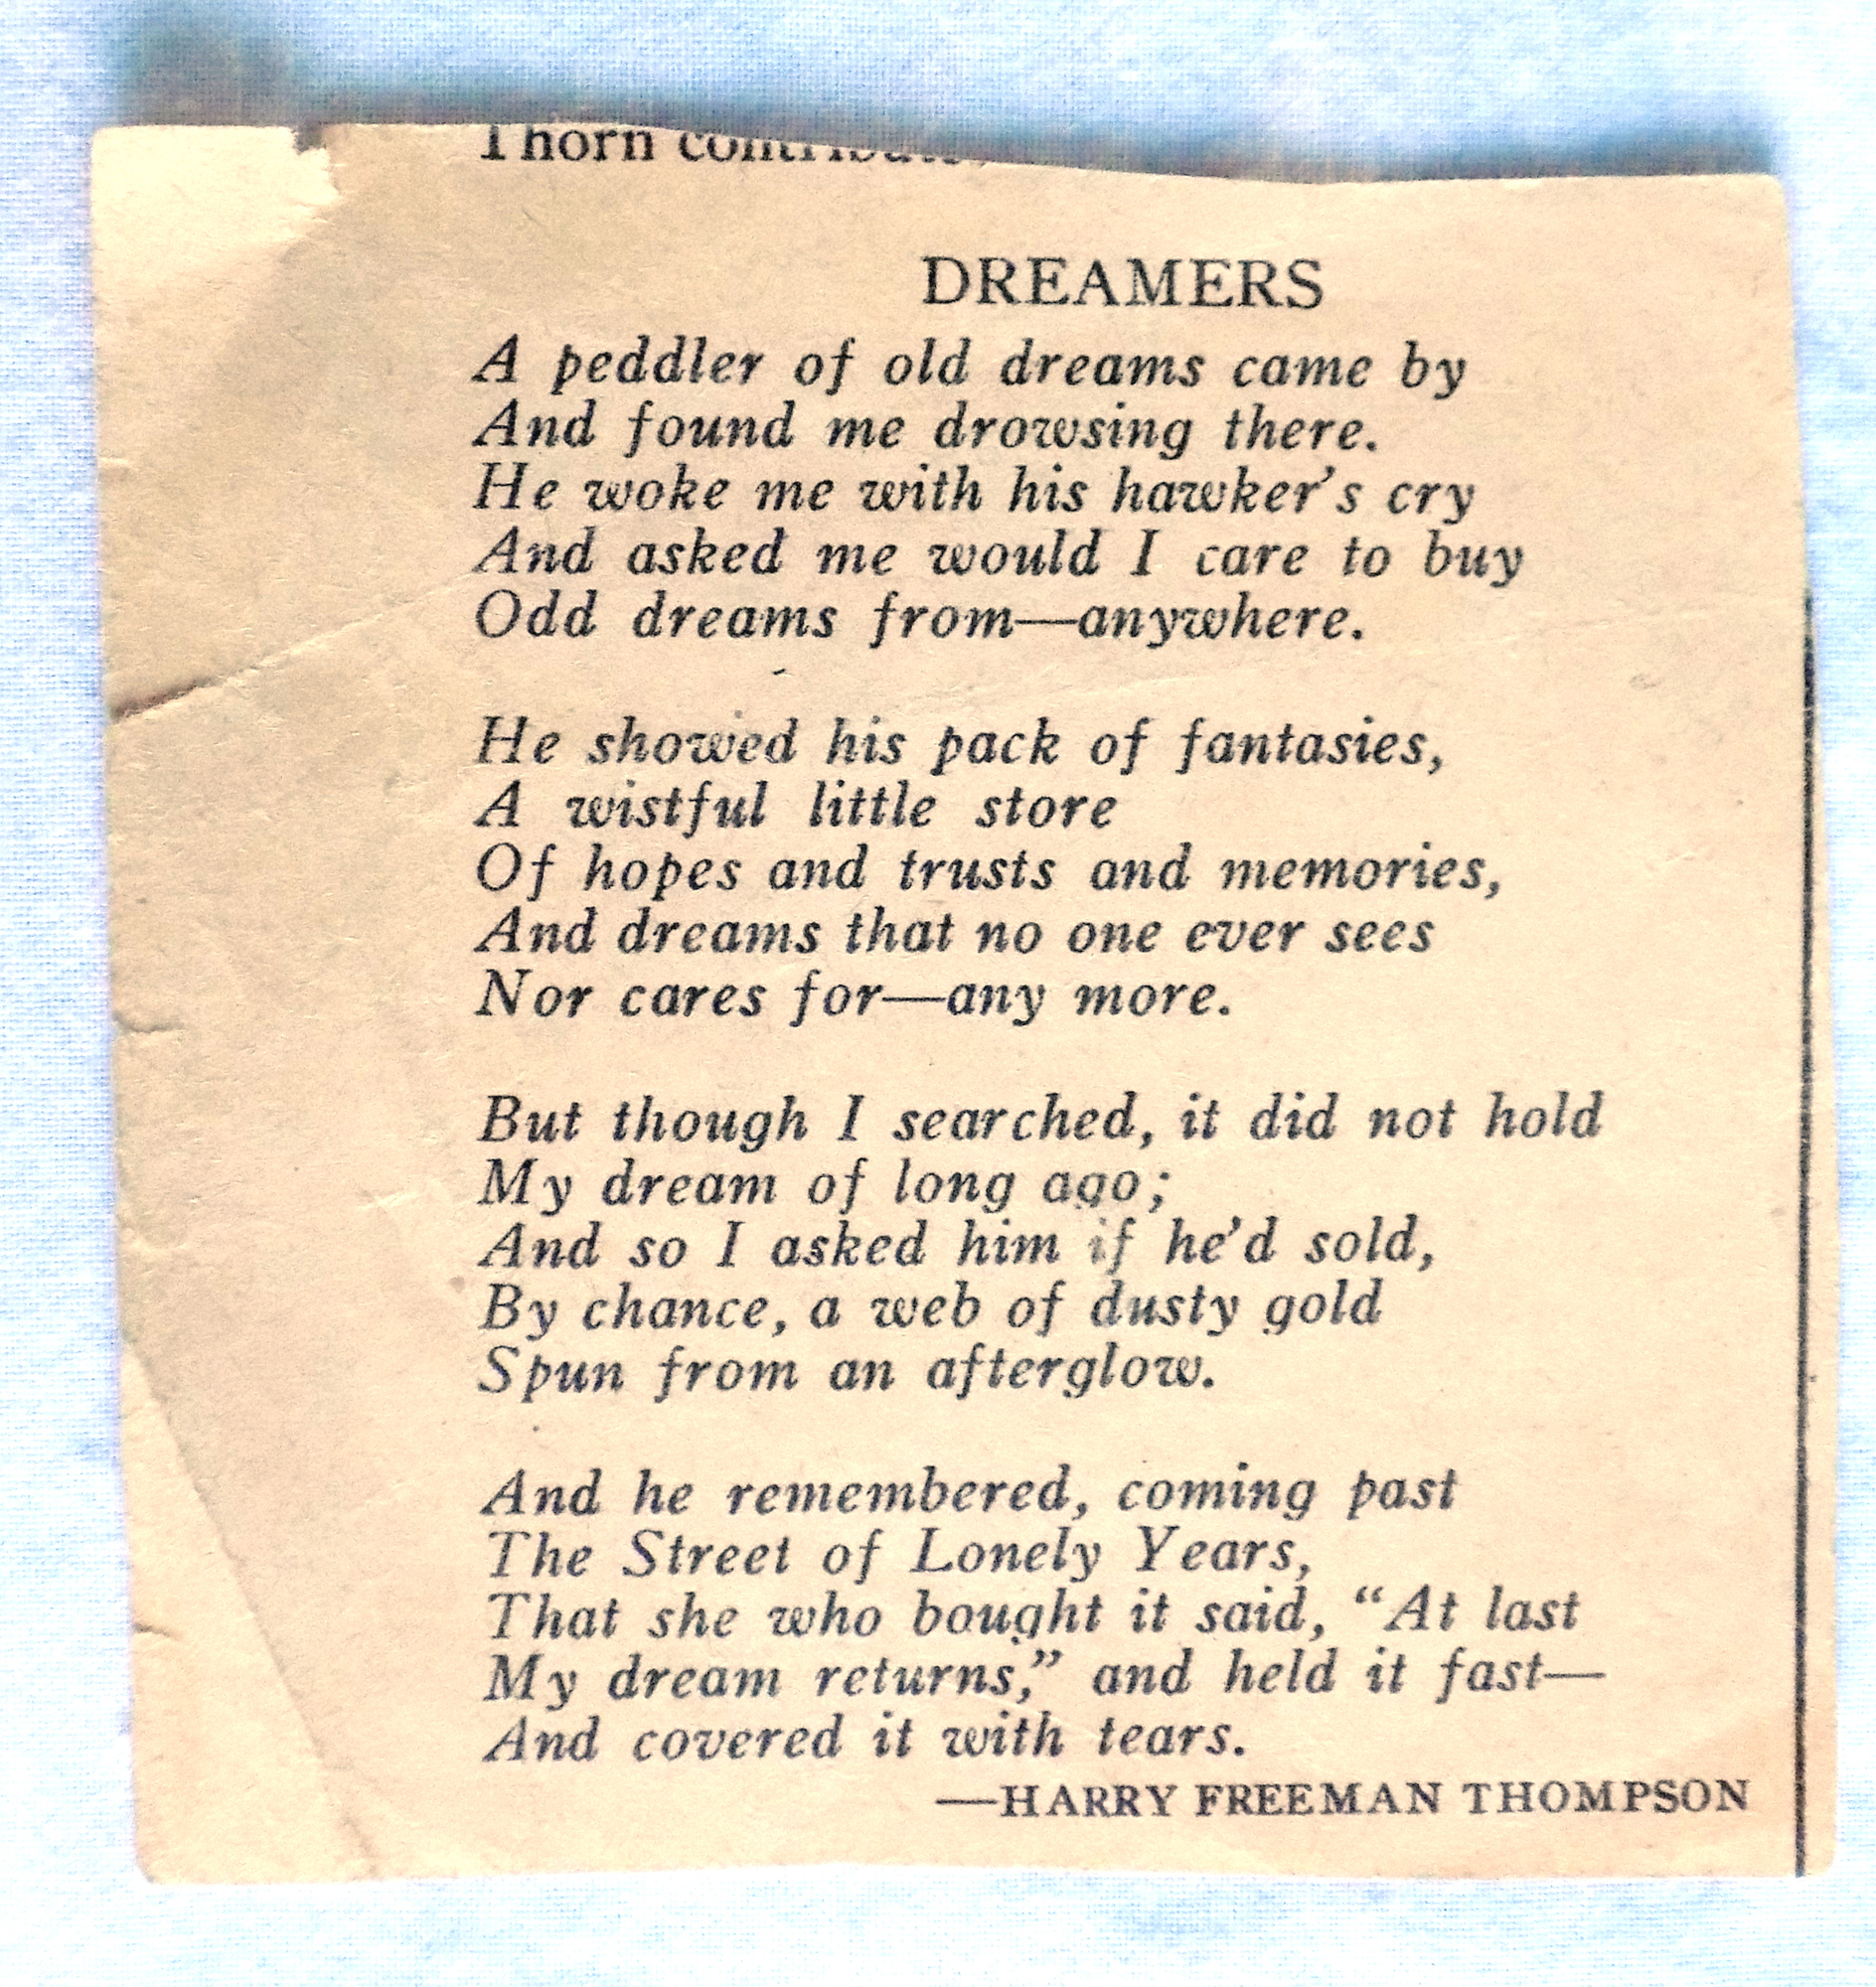 Thorn
DREAMERS
A peddler of old dreams came by
And found me drowsing there.
He woke me with his hawker's cry
And asked me would I care to buy
Odd dreams from—anywhere.
He showed his pack of fantasies,
A wistful little store
Of hopes and trusts and memories,
And dreams that no one ever sees
Nor cares for—any more.
But though I searched, it did not hold
My dream of long ago;
And so I asked him if he'd sold,
By chance, a web of dusty gold
Spun from an afterglow.
And he remembered, coming past
The Street of Lonely Years,
That she who bought it said, “At last
My dream returns,” and held it fast—
And covered it with tears.
—HARRY FREEMAN THOMPSON